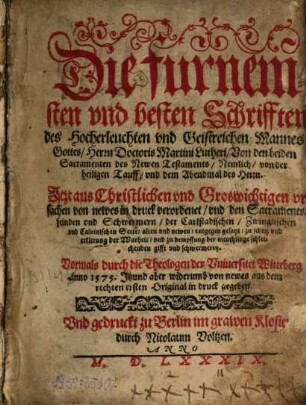 Die furnem
sten vnd besten Schrifften
des Hocherleuchten vnd Geistreichen Mannes
Gottes / Herrn Doctoris Martini Lutheri / Von den beiden
Sacramenten des Newen Testaments / Nemlich / von der
heiligen Tauff / vnd dem Abendmal des Herrn.
Jtzt aus Christlichen vnd Groswichtigen vr
sachen von newes in druck verordenet / vnd den Sacraments
feinden vnd Schwermern / der Carlstadischen / Zwinglischen
vnd Caluinischen Secte / alten vnd newen / entgegen gesetzt / zu schutz vnd
erklerung der Warheit / vnd zu dempffung der
gifft vnd schwermerey.
Vormals durch die Theologen der Vniuersitet Witteberg
Anno 1575. Jtzund aber widerumb von newes aus dem
rechten ersten Original in druck gegeben.
Vnd gedruckt zu Berlin im grawen Kloster
durch Nicolaum Voltzen.
ANNO
M. D. LXXXIX.